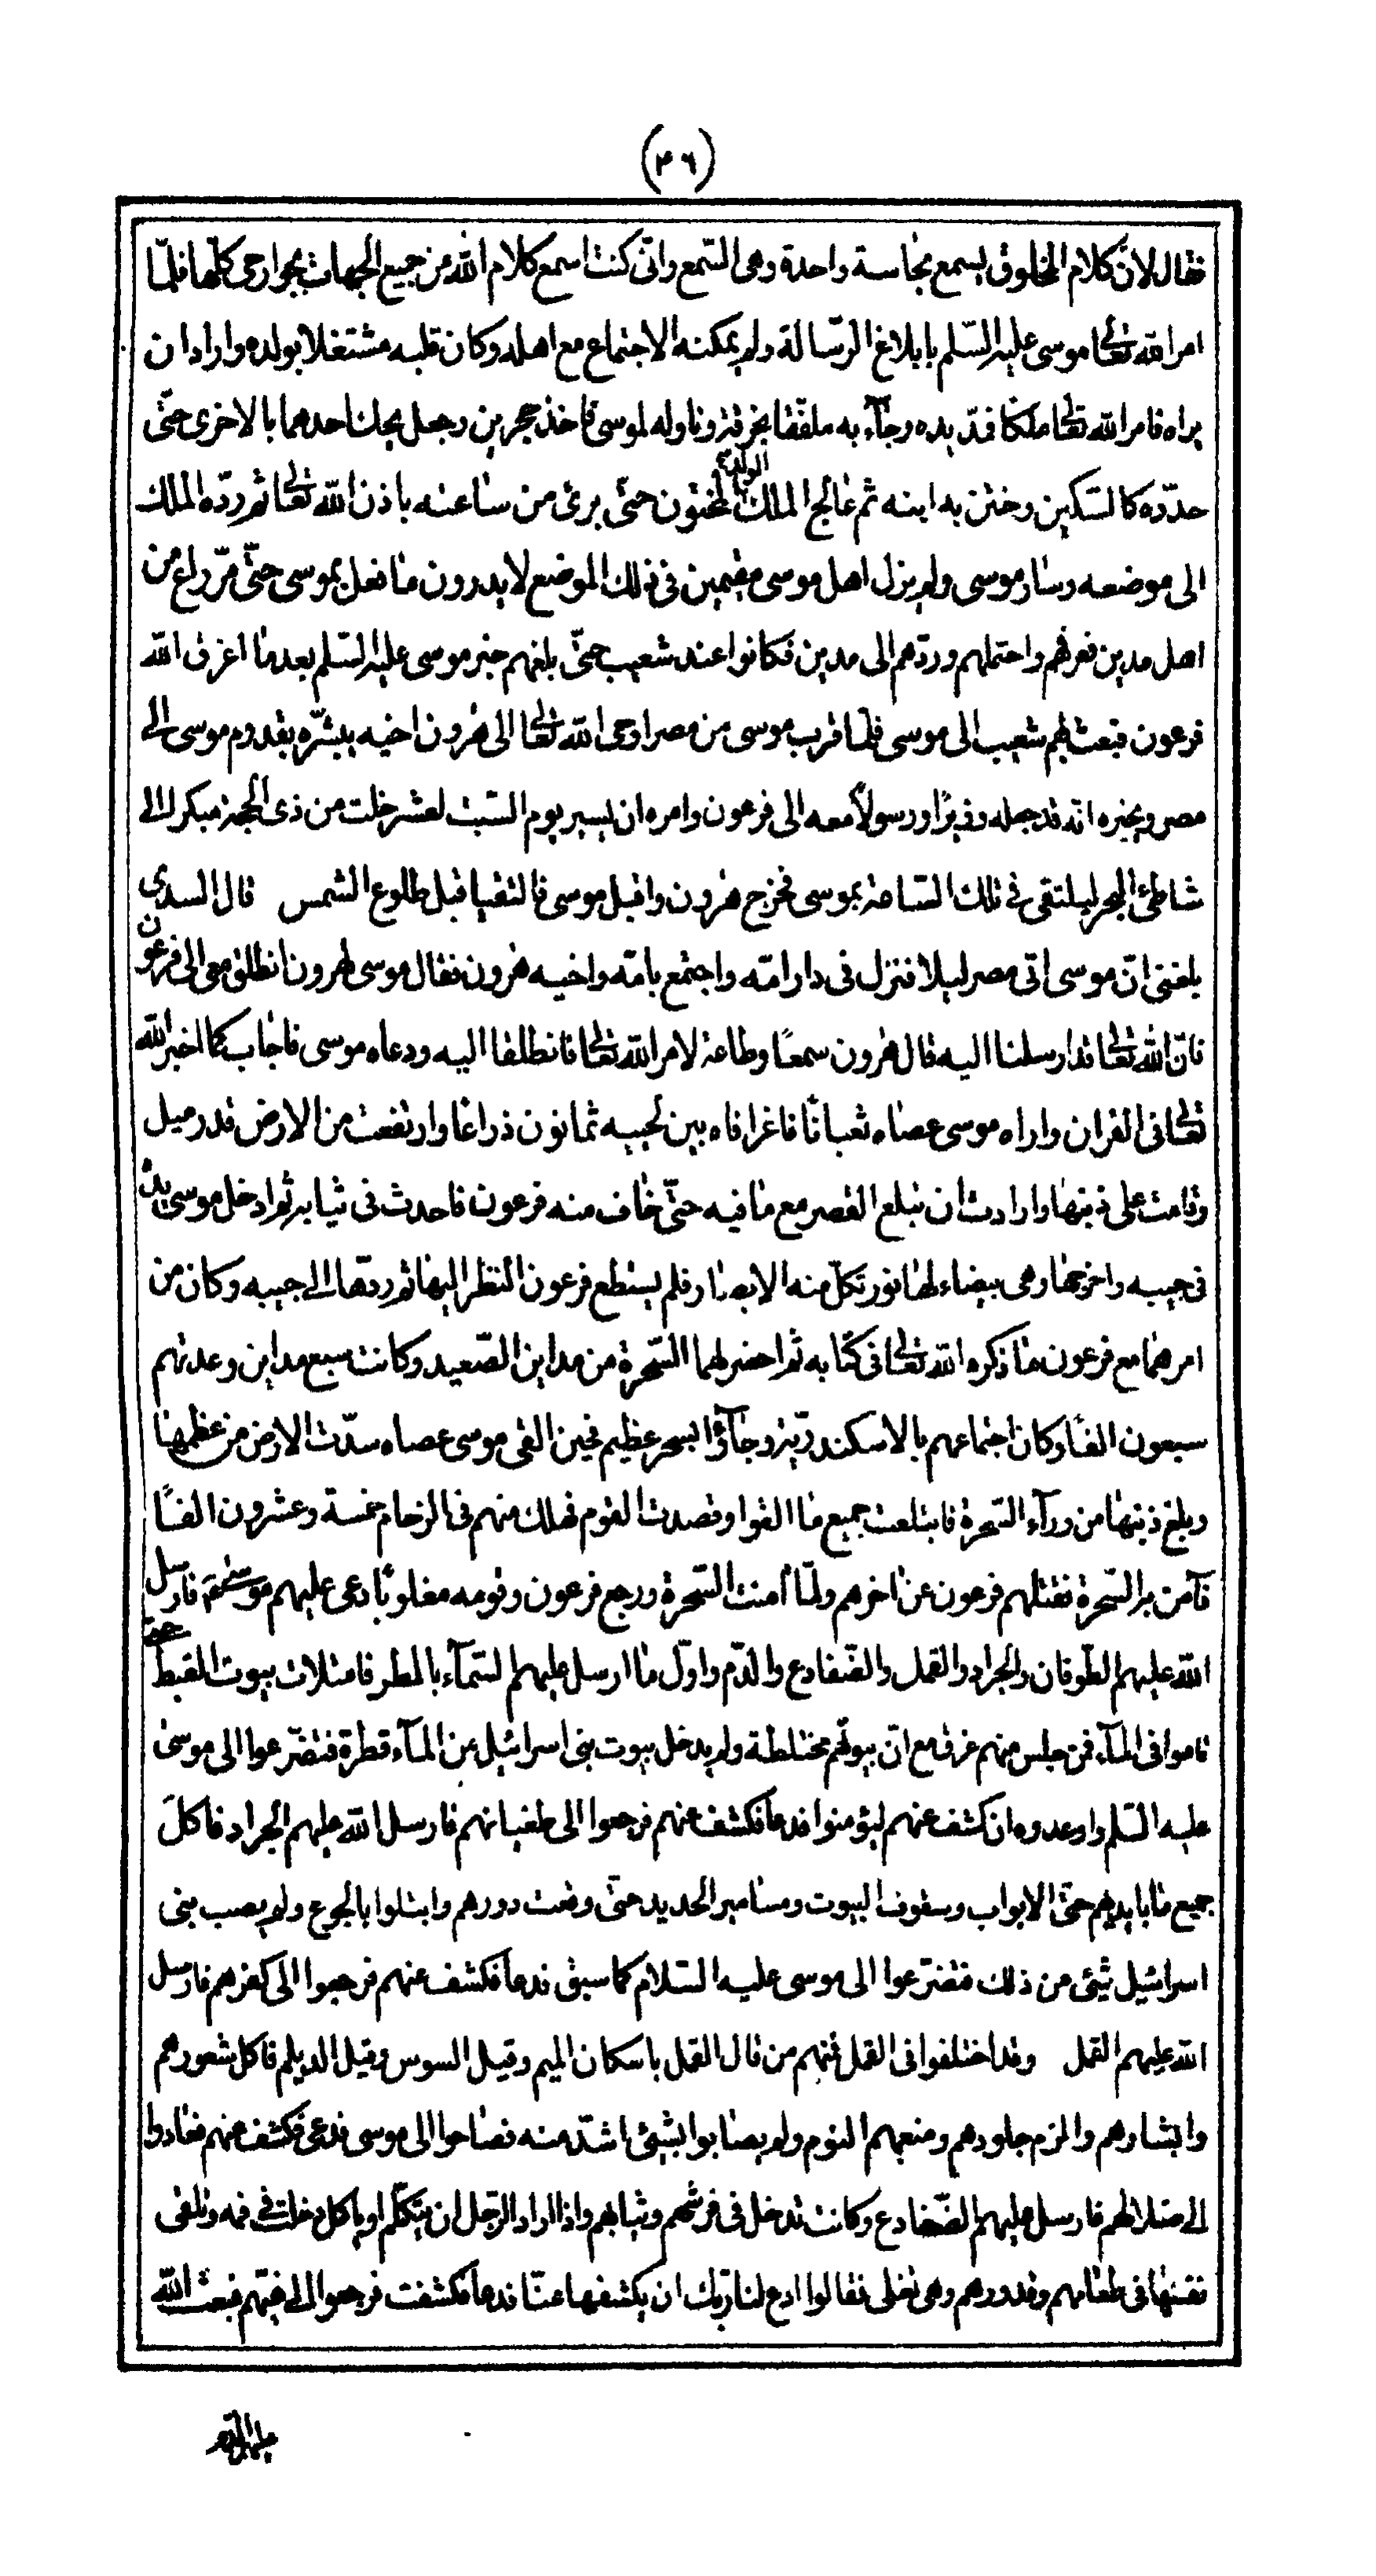 (۴٦)
فقال لان كلام المخلوق يسمع بحاسة واحدة وهى السّمع وانّى كنت اسمع كلام الله من جميع الجهات بجوارحى كلّها فلمّا
امر الله تعالى موسى عليه السّلم بابلاغ الرّسالة ولم يمكنه الاجتماع مع اهله وكان قلبه مشتغلا بولده واراد ان
يراه فامر الله تعالى ملكا فمدّ يده وجآء به ملفّفا بخرقة وناوله لموسى فاخذ حجرين وجعل يحك احدهما بالاخرى حتّى
حدّده كالسّكين وختن به ابنه ثم عالج الملك الولد المختون حتى برئ من ساعته باذن الله تعالى ثم ردّه الملك
الى موضعه وسار موسى ولم يزل اهل موسى مقيمين فى ذلك الموضع لا يدرون ما فعل بموسى حتّى مرّ راع من
اهل مدين فعرفهم واحتملهم وردّهم الى مدين فكانوا عند شعيب حتّى بلغهم خبر موسى عليه السّلم بعد ما اغرق الله
فرعون فبعث بهم شعيب الى موسى فلمّا قرب موسى من مصر اوحى الله تعالى الى هرون اخيه يبشّره بقدوم موسى الى
مصر ويخبره انّه قد جعله وزيرًا ورسولًا معه الى فرعون وامره ان يسير يوم السّبت لعشر خلت من ذى الحجة مبكرا الى
شاطئ البحر ليلتقى فى تلك السّاعة بموسى فخرج هرون واقبل موسى فالتقيا قبل طلوع الشمس قال السدى
بلغنى انّ موسى اتى مصر ليلا فنزل فى دار امّه واجتمع بامّه واخيه هرون فقال موسى لهرون انطلق معى الى فرعون
فانّ الله تعالى قد ارسلنا اليه قال هرون سمعًا وطاعة لامر الله تعالى فانطلقا اليه ودعاه موسى فاجاب كما اخبر الله
تعالى فى القران واراه موسى عصاه ثعبانًا فاغرا فاه بين لحييه ثمانون ذراعًا وارتفعت من الارض قدر ميل
وقامت على ذنبها وارادت ان تبلع القصر مع ما فيه حتّى خاف منه فرعون فاحدث فى ثيابه ثم ادخل موسى يده
فى جيبه واخرجها وهى بيضاء لها نور تكلّ منه الابصار فلم يستطع فرعون النظر اليها ثم ردّها الى جيبه وكان من
امرهما مع فرعون ما ذكره الله تعالى فى كتابه ثم احضر لهما السّحرة من مداين الصّعيد وكانت سبع مداين وعدتهم
سبعون الفًا وكان اجتماعهم بالاسكندريّة وجآؤا بسحر عظيم فحين القى موسى عصاه سدّت الارض من عظمها
وبلغ ذنبها من ورآء السّحرة فابتلعت جميع ما القوا وقصدت القوم فهلك منهم فى الزحام خمسة وعشرون الفًا
فآمن به السّحرة فقتلهم فرعون عن اخرهم ولمّا امنت السّحرة ورجع فرعون وقومه مغلوبًا دعى عليهم موسى فارسل
الله عليهم الطّوفان والجراد والقمل والضّفادع والدّم واوّل ما ارسل عليهم السّمآء بالمطر فامتلات بيوت القبط حتى
قاموا فى المآء فمن جلس منهم غرق مع انّ بيوتهم مختلطة ولم يدخل بيوت بنى اسرائيل من المآء قطرة فتضرّعوا الى موسى
عليه السّلم واوعدوه ان كشف عنهم ليؤمنوا فدعا فكشف عنهم فرجعوا الى طغيانهم فارسل الله عليهم الجراد فاكلَ
جميع ما بايديهم حتّى الابواب وسقوف البيوت ومسامير الحديد حتّى وقعت دورهم وابتلوا بالجوع ولم يصب بنى
اسرائيل شئ من ذلك فتضرّعوا الى موسى عليه السّلام كما سبق فدعا فكشف عنهم فرجعوا الى كفرهم فارسل
الله عليهم القمل وقد اختلفوا فى القمل فمنهم من قال القمل باسكان الميم وقيل السوس وقيل الديلم فاكل شعورهم
وابشارهم والزم جلودهم ومنعهم النوم ولم يصابوا بشئ اشدّ منه فصاحوا الى موسى فدعى فكشف عنهم فعادوا
الى ضلالهم فارسل عليهم الضّفادع وكانت تدخل فى فرشهم وثيابهم واذا اراد الرّجل ان يتكلّم او ياكل دخلت فى فمه وتلقى
نفسها فى طعامهم وقدورهم وهى تغلى فقالوا ادع لنا ربّك ان يكشفها عنّا فدعا فكشفت فرجعوا الى غيّهم فبعث الله
عليهم الدّم